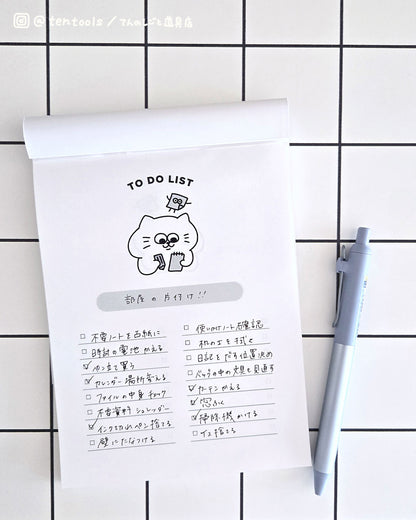 @tentools/てんのしごと道具店
TO DO LIST
部屋の片付け!!
不要ノートを古紙に
時計の電池かえる
ペン立て買う
カレンダー場所変える
ファイルの中身チェック
不要資料シュレッダー
インク切れペン捨てる
壁にたなつける
使いかけノート確認
机の上を拭く
日記をだす位置決め
バッグの中の文具を見直す
カーテンかえる
窓ふく
掃除機かける
ゴミ捨てる